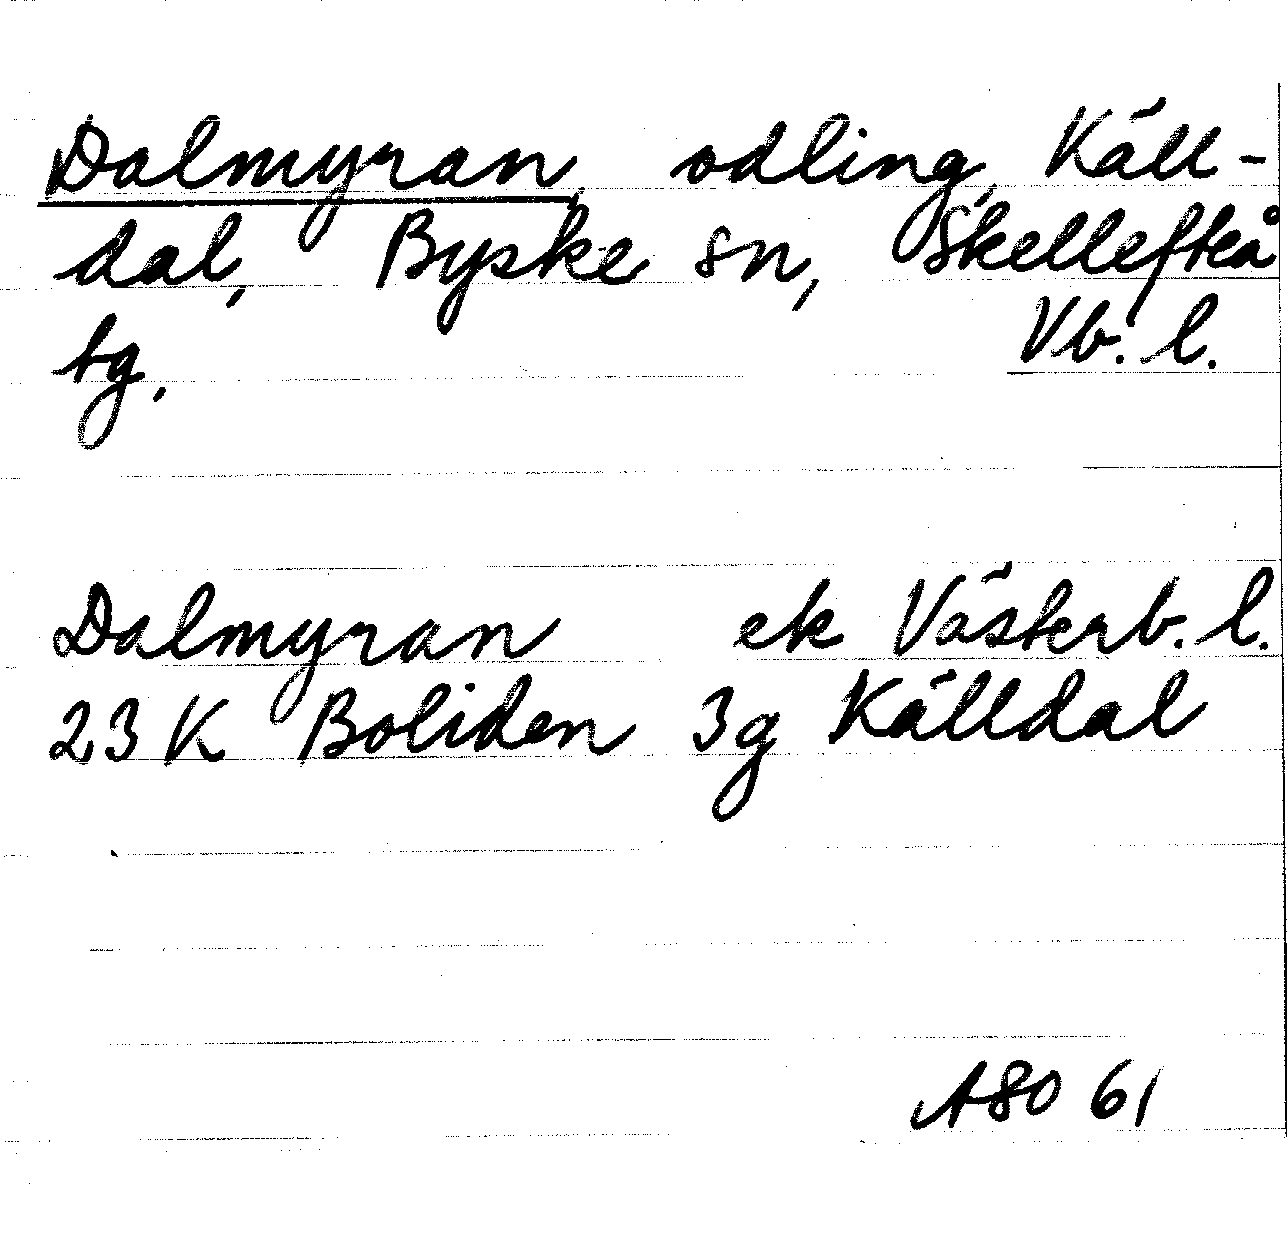 Dalmyran, odling, Käll-
dal, Byske sn, Skellefteå
tg. Vb. l.
Dalmyran ek Västerb. l.
23 K Boliden 3g Källdal
A80 61